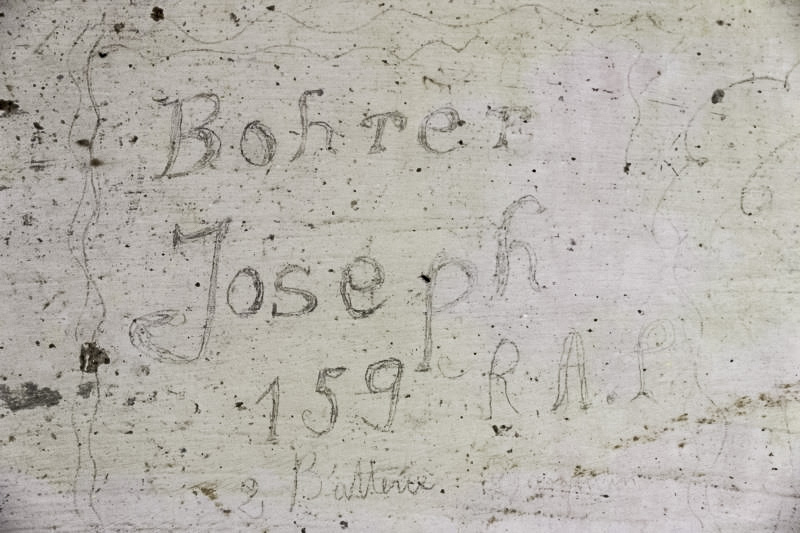 Bohrer
Joseph
159 R A.P
2 Batterie